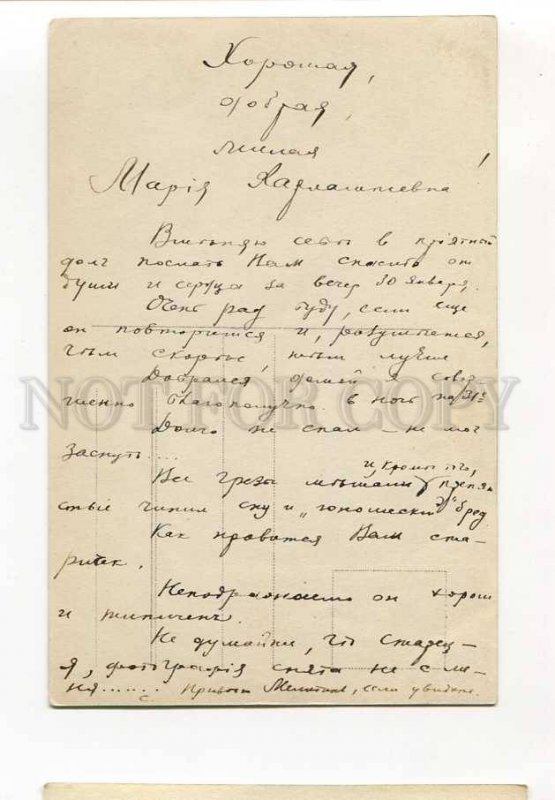 Хорошая,
добрая,
милая
Марія Харлампіевна!
Вмѣняю себѣ в пріятный
долг послать Вам спасибо от
души и сердца за вечер 30 января.
Очень рад буду, если еще
он повторится и, разумѣется,
чѣм скорѣе, тѣм лучше
Добрался домой я совер
шенно благополучно в ночь на 31е
Долго не спал – не мог
заснуть....
и, кромѣ того,
Все грезы мѣшали препя
ствіе чинил сну и „юношескій" бред
Как нравится Вам ста-
ричек.
Неподражаемо он хорош
и типичен.
Не думайте, что старец –
я, фотографія снята не с ме-
ня...... Привѣт , если увидите.
NOT FOR COPY